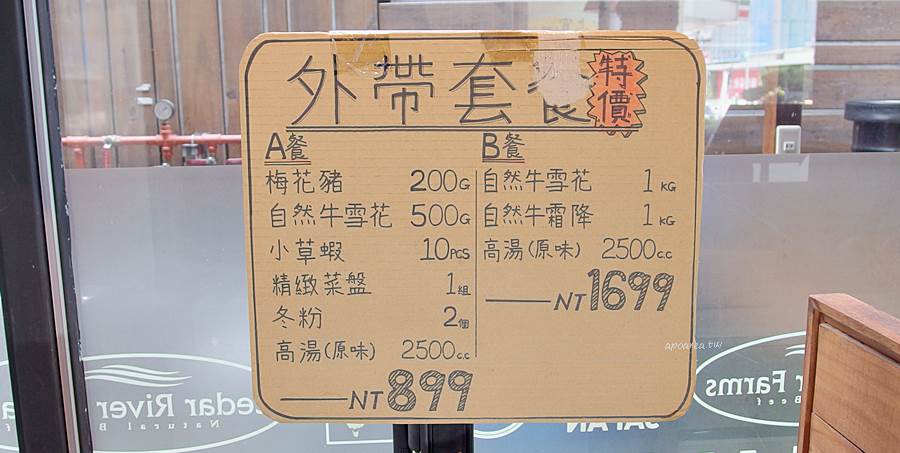 外帶套餐
特價
A餐
梅花豬 200G
自然牛雪花 500G
小草蝦 10PCS
精緻菜盤 1組
冬粉 2個
高湯(原味) 2500c.c
NT899
B餐
自然牛雪花 1KG
自然牛霜降 1KG
高湯(原味) 2500c.c
NT1699
apoarea.tw
Cedar River
Natural B
r Farms
Beef
JAPAN